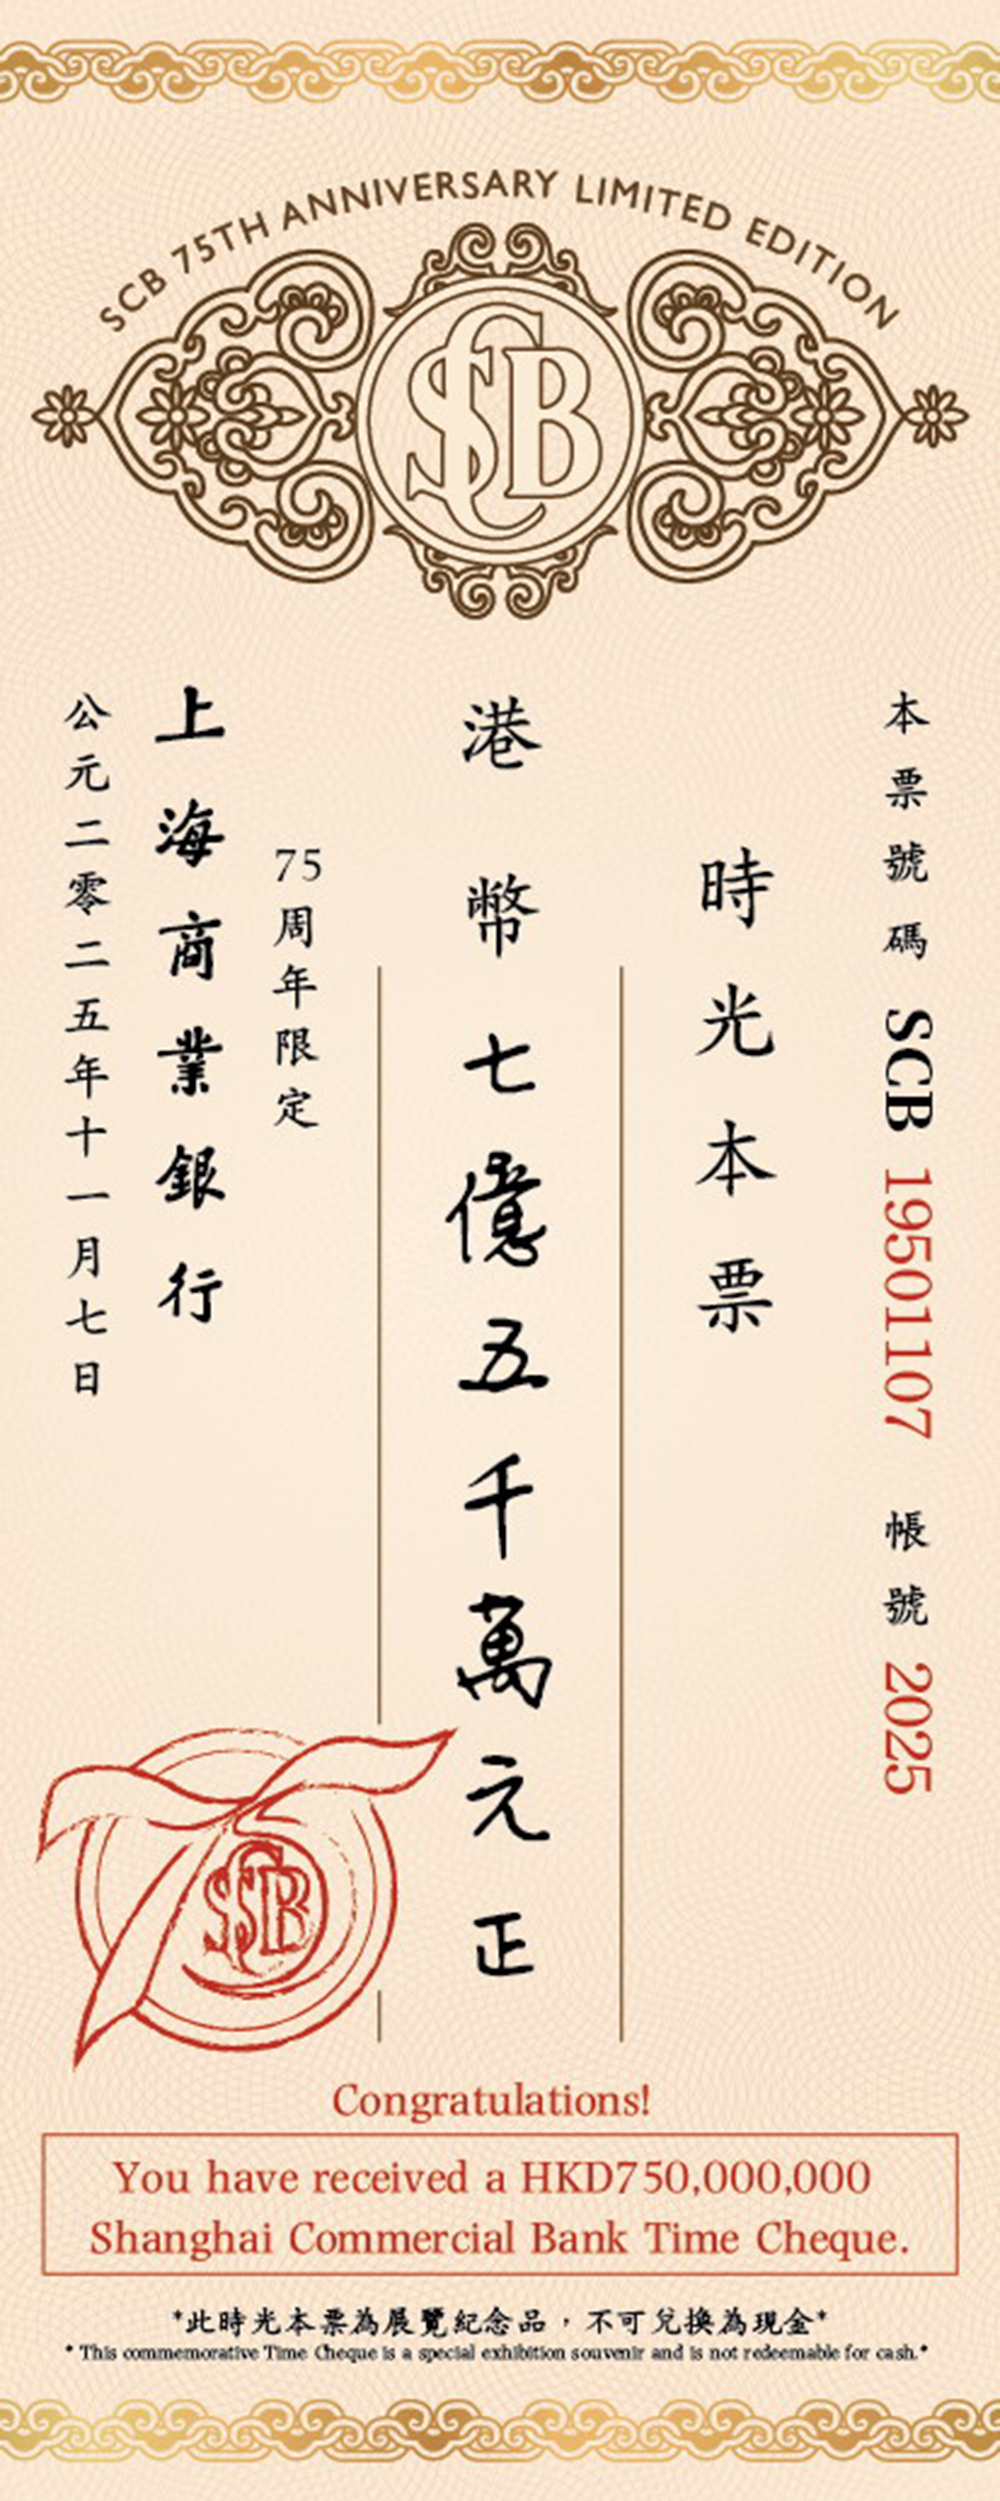 SCB 75TH ANNIVERSARY LIMITED EDITION
SCB
本票號碼 SCB 19501107 帳號 2025
時光本票
港幣七億五千萬元正
75周年限定
上海商業銀行
公元二零二五年十一月七日
75
SCB
Congratulations!
You have received a HKD750,000,000
Shanghai Commercial Bank Time Cheque.
*此時光本票為展覽紀念品，不可兌換為現金*
* This commemorative Time Cheque is a special exhibition souvenir and is not redeemable for cash.*